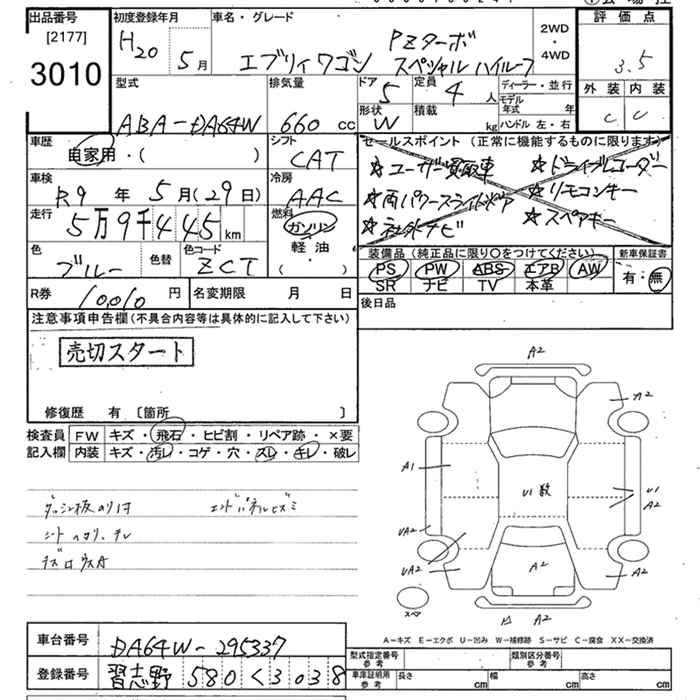 出品番号
[2177]
3010
初度登録年月
H20 5月
車名・グレード
エブリィワゴン PZターボ スペシャル ハイルーフ
2WD
・
4WD
評価点
3.5
外装 内装
C C
型式
ABA-DA64W
排気量
660 CC
ドア 5
定員 4 人
ディーラー・並行
形状 W
積載 kg
モデル年式 年
ハンドル 左・右
車歴
自家用・( )
シフト
CAT
セールスポイント (正常に機能するものに限ります)
☆ユーザー買取車 ☆ドライブレコーダー
☆両パワースライドドア ☆リモコンキー
☆社外ナビ ☆スペアキー
車検
R9 年 5 月(29日)
冷房
AAC
走行
5万9千445km
燃料
ガソリン
軽油
( ・ )
色
ブルー
色替
色コード
ZCT
装備品 (純正品に限り○をつけてください)
PS PW ABS エアB AW
SR ナビ TV 本革
新車保証書
有・無
R券 10010 円
名変期限 月 日
後日品
注意事項申告欄(不具合内容等は具体的に記入して下さい)
売切スタート
修復歴 有 〔箇所 〕
検査員 FW キズ・飛石・ヒビ割・リペア跡・×要
記入欄 内装 キズ・汚レ・コゲ・穴・スレ・キレ・破レ
シート ヘタリ、チレ
A2
A2
A1
U1数
U1
A2
UA2
UA2
A2
A2
スペア
A2
A－キズ E－エクボ U－凹み W－補修跡 S－サビ C－腐食 XX－交換済
車台番号 DA64W-295337
登録番号 習志野 580 く 3038
型式指定番号 参考
類別区分番号 参考
車庫証明用 参考
長さ cm 幅 cm 高さ cm